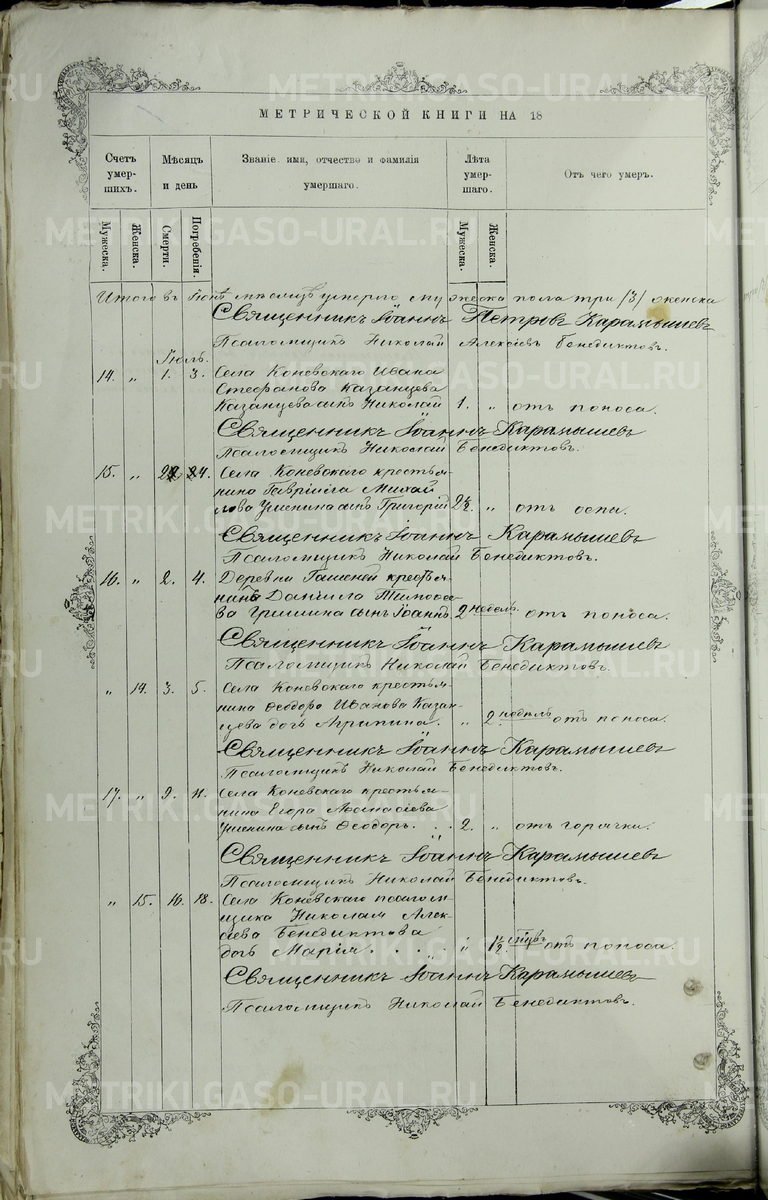 МЕТРИЧЕСКОЙ КНИГИ НА 18
Счетъ умерших. Мѣсяцъ и день Званіе, имя, отчество и фамилія умершаго. Лѣта умершаго. Отъ чего умеръ.
Мужеска. Женска. Смерти. Погребенія. Мужеска. Женска.
Итого въ Іюнѣ мѣсяцѣ умерло мужеска пола три /3/ женска
Священникъ Іоаннъ Петровъ Карамышевъ
Псаломщикъ Николай Алексѣевъ Бенедиктовъ.
Іюль.
14. „ 1. 3. Села Коневскаго Ивана
Стефанова Казанцева
Казанцева сынъ Николай 1. „ отъ поноса.
Священникъ Іоаннъ Карамышевъ
Псаломщикъ Николай Бенедиктовъ.
15. „ 24. Села Коневскаго крестья-
нина Гавріила Михай
лова Ушенина сынъ Григорій „ отъ оспа.
Священникъ Іоаннъ Карамышевъ
Псаломщикъ Николай Бенедиктовъ.
16. „ 2. 4. Деревни крестья-
нина Даніила Тимофее-
ва Гришина сынъ Іоаннъ. 2 недѣль отъ поноса.
Священникъ Іоаннъ Карамышевъ
Псаломщикъ Николай Бенедиктовъ.
„ 14. 3. 5. Села Коневскаго крестья-
нина Ѳеодора Иванова Казан-
цева дочь Агрипина. „ 2 недѣль отъ поноса.
Священникъ Іоаннъ Карамышевъ
Псаломщикъ Николай Бенедиктовъ.
17. „ 9. 11. Села Коневскаго крестья-
нина Егора Аѳанасіева
Ушенина сынъ Ѳеодоръ. . . 2. „ отъ горячки.
Священникъ Іоаннъ Карамышевъ
Псаломщикъ Николай Бенедиктовъ.
„ 15. 16. 18. Села Коневскаго псалом-
щика Николая Алек-
сіева Бенедиктова
дочь Марія . . . . . „ отъ поноса.
Священникъ Іоаннъ Карамышевъ
Псаломщикъ Николай Бенедиктовъ.
METRIKI.GASO-URAL.RU
METRIKI.GASO-URAL.RU
METRIKI.GASO-URAL.RU
METRIKI.GASO-URAL.RU
METRIKI.GASO-URAL.RU
METRIKI.GASO-URAL.RU
METRIKI.GASO-URAL.RU
METRIKI.GASO-URAL.RU